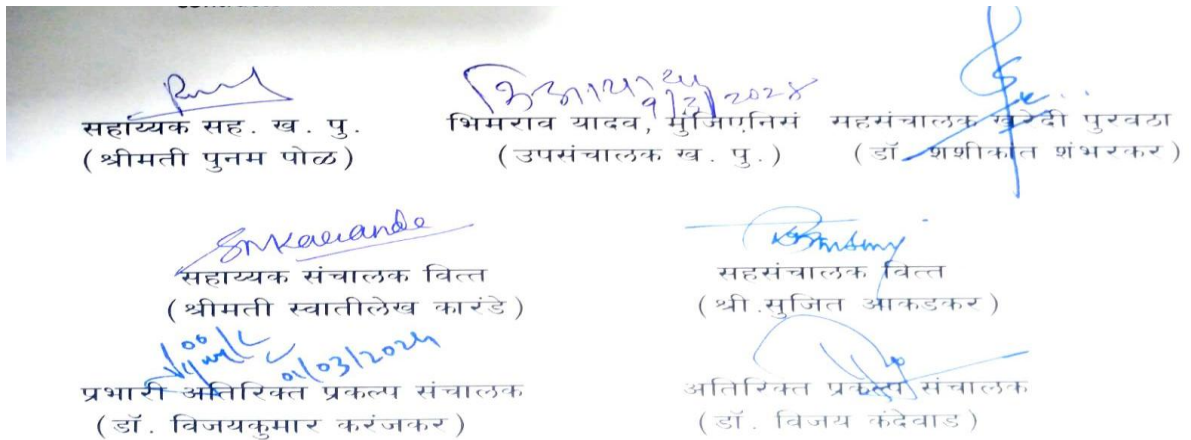 सहाय्यक सह. ख. पु.
(श्रीमती पुनम पोळ)
९/३/२०२४
भिमराव यादव, मुंजिएनिसं
(उपसंचालक ख. पु.)
सहसंचालक खरेदी पुरवठा
(डॉ. शशीकांत शंभरकर)
SnKarande
सहाय्यक संचालक वित्त
(श्रीमती स्वातीलेख कारंडे)
सहसंचालक वित्त
(श्री.सुजित आकडकर)
01/03/2024
प्रभारी अतिरिक्त प्रकल्प संचालक
(डॉ. विजयकुमार करंजकर)
अतिरिक्त प्रकल्प संचालक
(डॉ. विजय कंदेवाड)